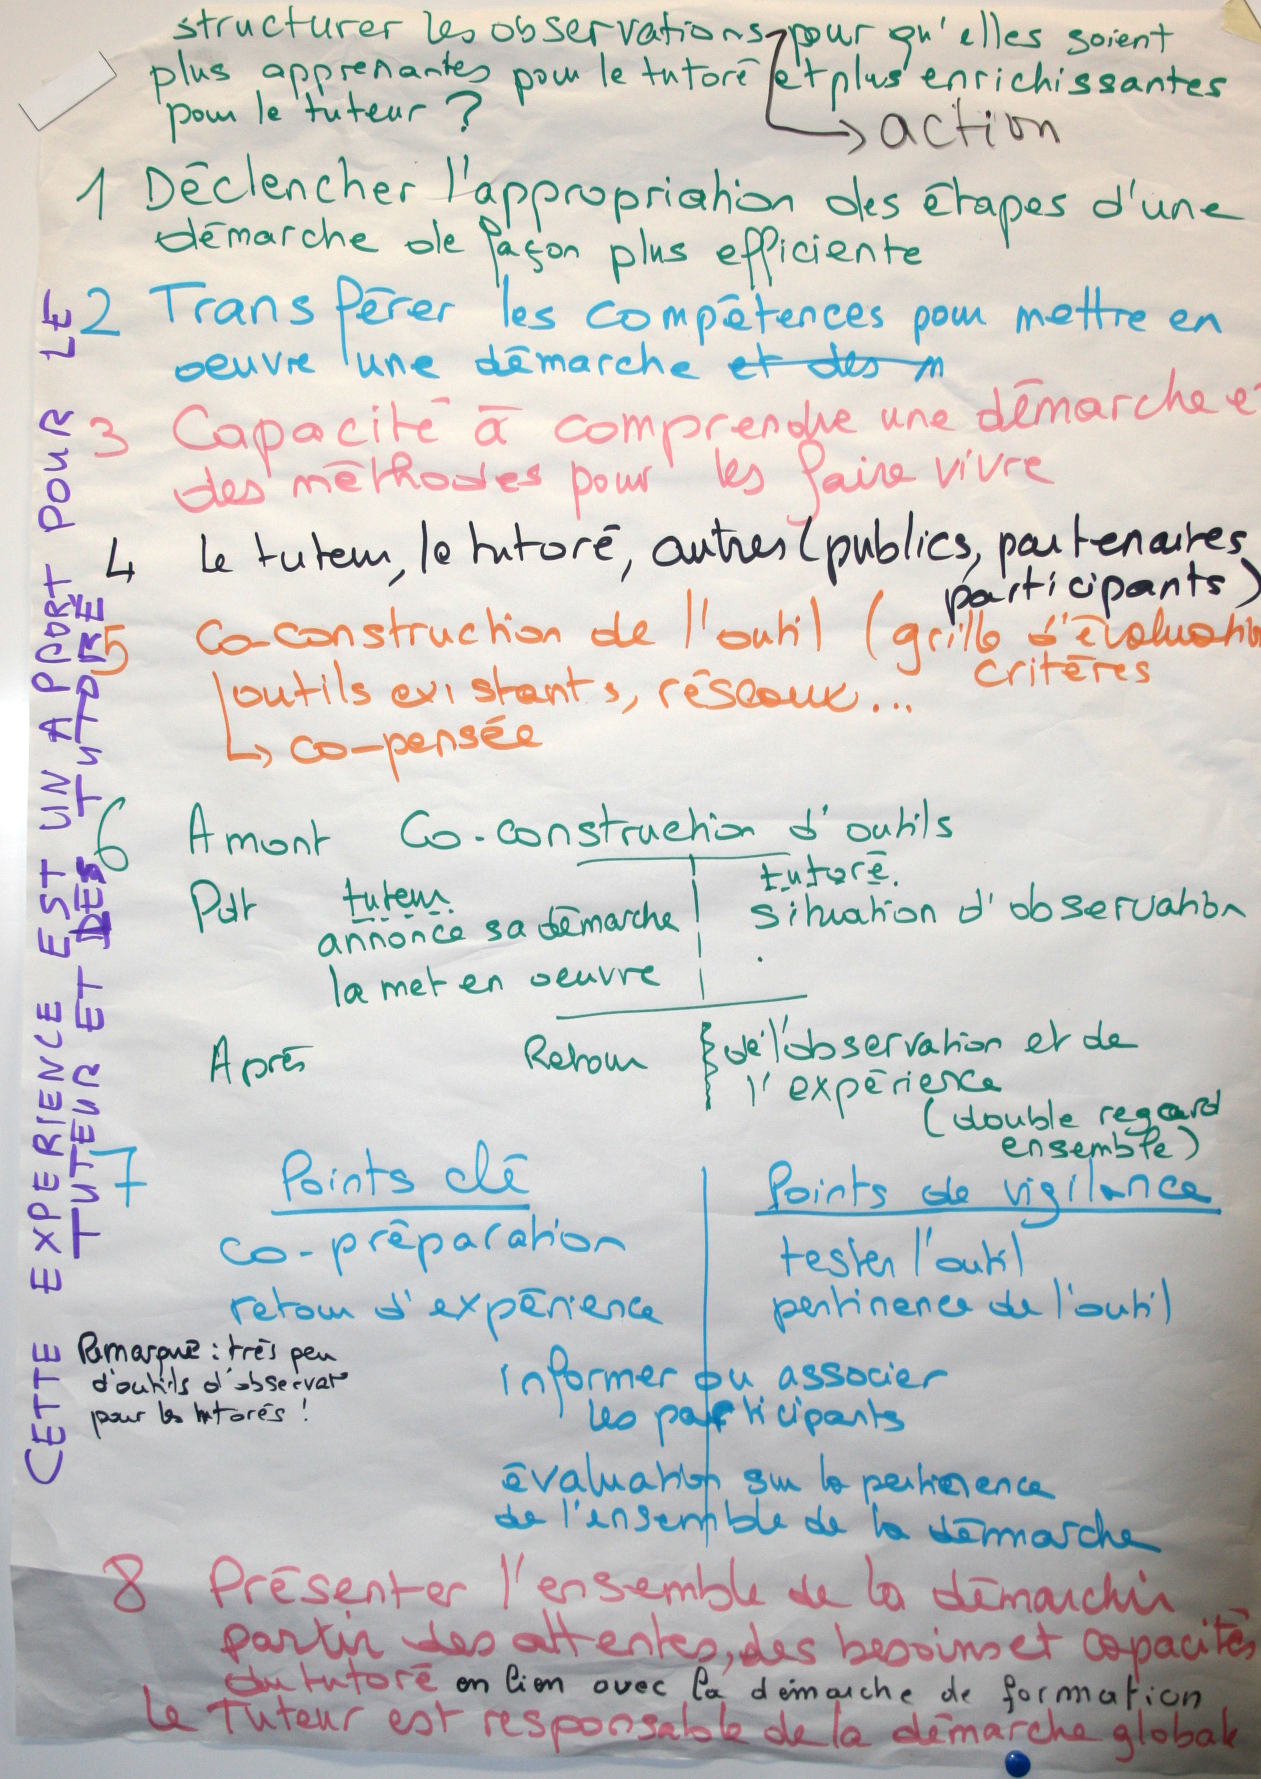 structurer les observations pour qu'elles soient
plus apprenantes pour le tutoré et plus enrichissantes
pour le tuteur ?
action
1 Déclencher l'appropriation des étapes d'une
démarche de façon plus efficiente
2 Transférer les compétences pour mettre en
oeuvre une démarche et des m
3 Capacité à comprendre une démarche et
des méthodes pour les faire vivre
4 Le tuteur, le tutoré, autres (publics, partenaires
participants)
5 Co-construction de l'outil (grille d'évaluation
critères
outils existants, réseaux...
co-pensée
6 Amont Co-construction d'outils
Pdt tuteur
annonce sa démarche
la met en oeuvre
tutoré.
situation d'observation
Après Retour de l'observation et de
l'expérience
(double regard
ensemble)
7 Points clé
co-préparation
retour d'expérience
Points de vigilance
tester l'outil
pertinence de l'outil
informer ou associer
les participants
évaluation sur la pertinence
de l'ensemble de la démarche
Remarque : très peu
d'outils d'observat°
pour les tutorés !
8 Présenter l'ensemble de la démarche
partir des attentes, des besoins et capacités
du tutoré en lien avec la démarche de formation
Le Tuteur est responsable de la démarche globale
CETTE EXPERIENCE EST UN APPORT POUR LE
TUTEUR ET DES TUTORÉ